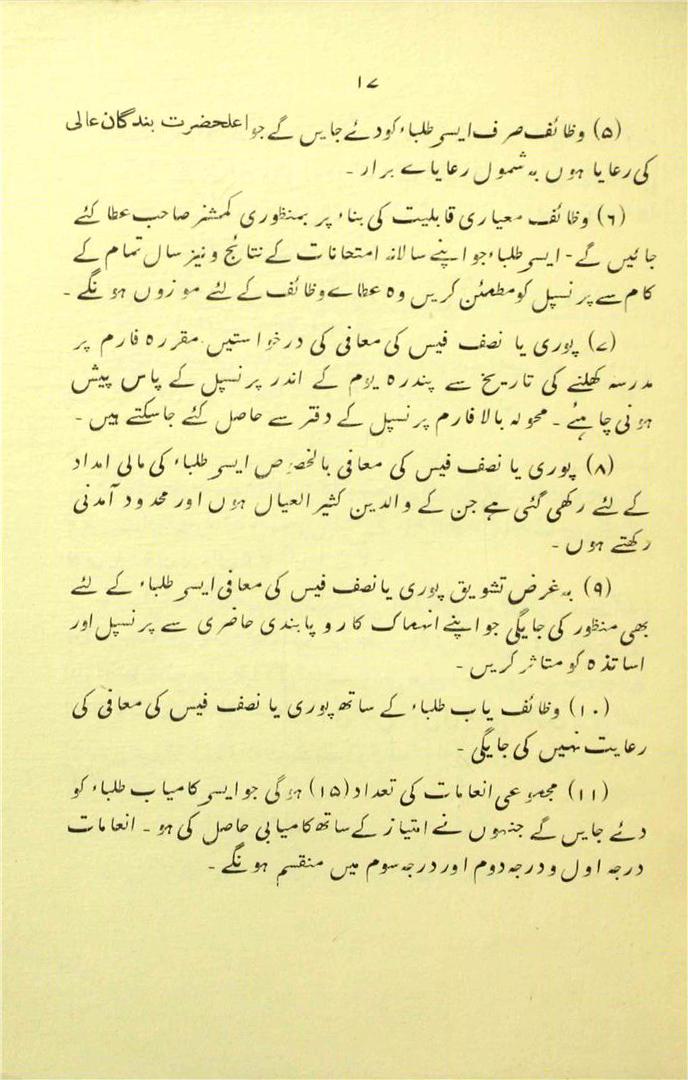 ۱۷
(۵) وظائف صرف ایسے طلباء کو دئے جایں گے جو اعلحضرت بندگان عالی
کی رعایا ہوں بہ شمول رعایاے برار ۔
(۶) وظائف معیاری قابلیت کی بناء پر بمنظوری کمشنر صاحب عطا کئے
جائیں گے - ایسے طلباء جو اپنے سالانہ امتحانات کے نتائج و نیز سال تمام کے
کام سے پرنسپل کو مطمئن کریں وہ عطاے وظائف کے لئے موزوں ہونگے ۔
(۷) پوری یا نصف فیس کی معافی کی درخواستیں مقررہ فارم پر
مدرسہ کھلنے کی تاریخ سے پندرہ یوم کے اندر پرنسپل کے پاس پیش
ہونی چاہئے ۔ محولہ بالا فارم پرنسپل کے دفتر سے حاصل کئے جاسکتے ہیں ۔
(۸) پوری یا نصف فیس کی معافی بالخصوص ایسے طلباء کی مالی امداد
کے لئے رکھی گئی ہے جن کے والدین کثیر العیال ہوں اور محدود آمدنی
رکھتے ہوں ۔
(۹) بہ غرض تشویق پوری یا نصف فیس کی معافی ایسے طلباء کے لئے
بھی منظور کی جایگی جو اپنے انہماک کار و پابندی حاضری سے پرنسپل اور
اساتذہ کو متاثر کریں ۔
(۱۰) وظائف یاب طلباء کے ساتھ پوری یا نصف فیس کی معافی کی
رعایت نہیں کی جایگی ۔
(۱۱) مجموعی انعامات کی تعداد (۱۵) ہوگی جو ایسے کامیاب طلباء کو
دئے جایں گے جنہوں نے امتیاز کے ساتھ کامیابی حاصل کی ہو ۔ انعامات
درجہ اول و درجہ دوم اور درجہ سوم میں منقسم ہونگے ۔